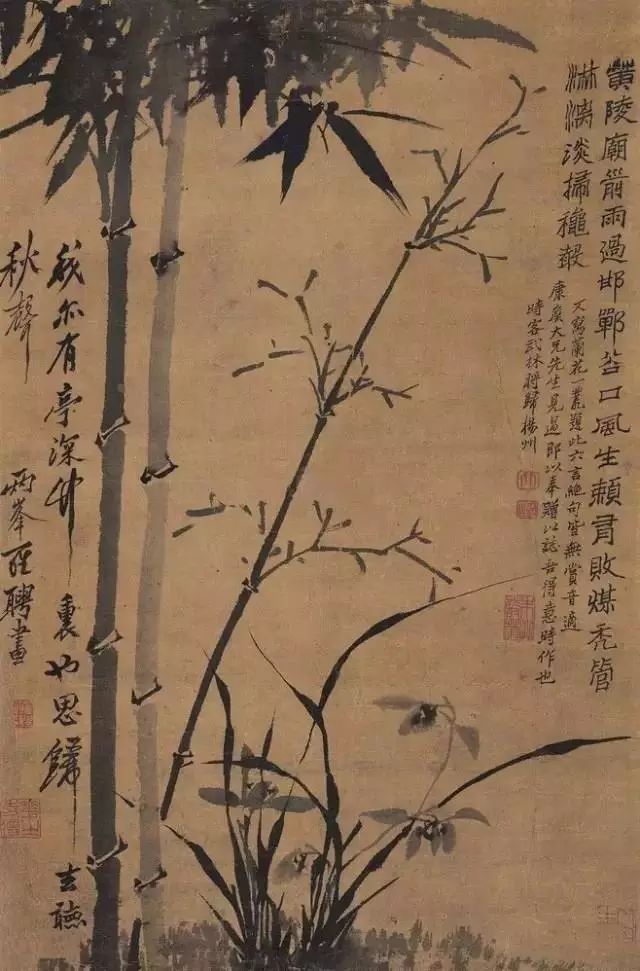 黃陵廟前雨過邯鄲谷口風生賴有敗煤禿管
淋漓淡掃龝聲
又寫蘭花一叢題此六言絕句皆無賞音適
康侯大兄先生見過即以奉贈以誌吾得意時作也
時客武林將歸楊州
我亦有亭深竹裏也思歸去聽
秋聲
兩峯羅聘畫